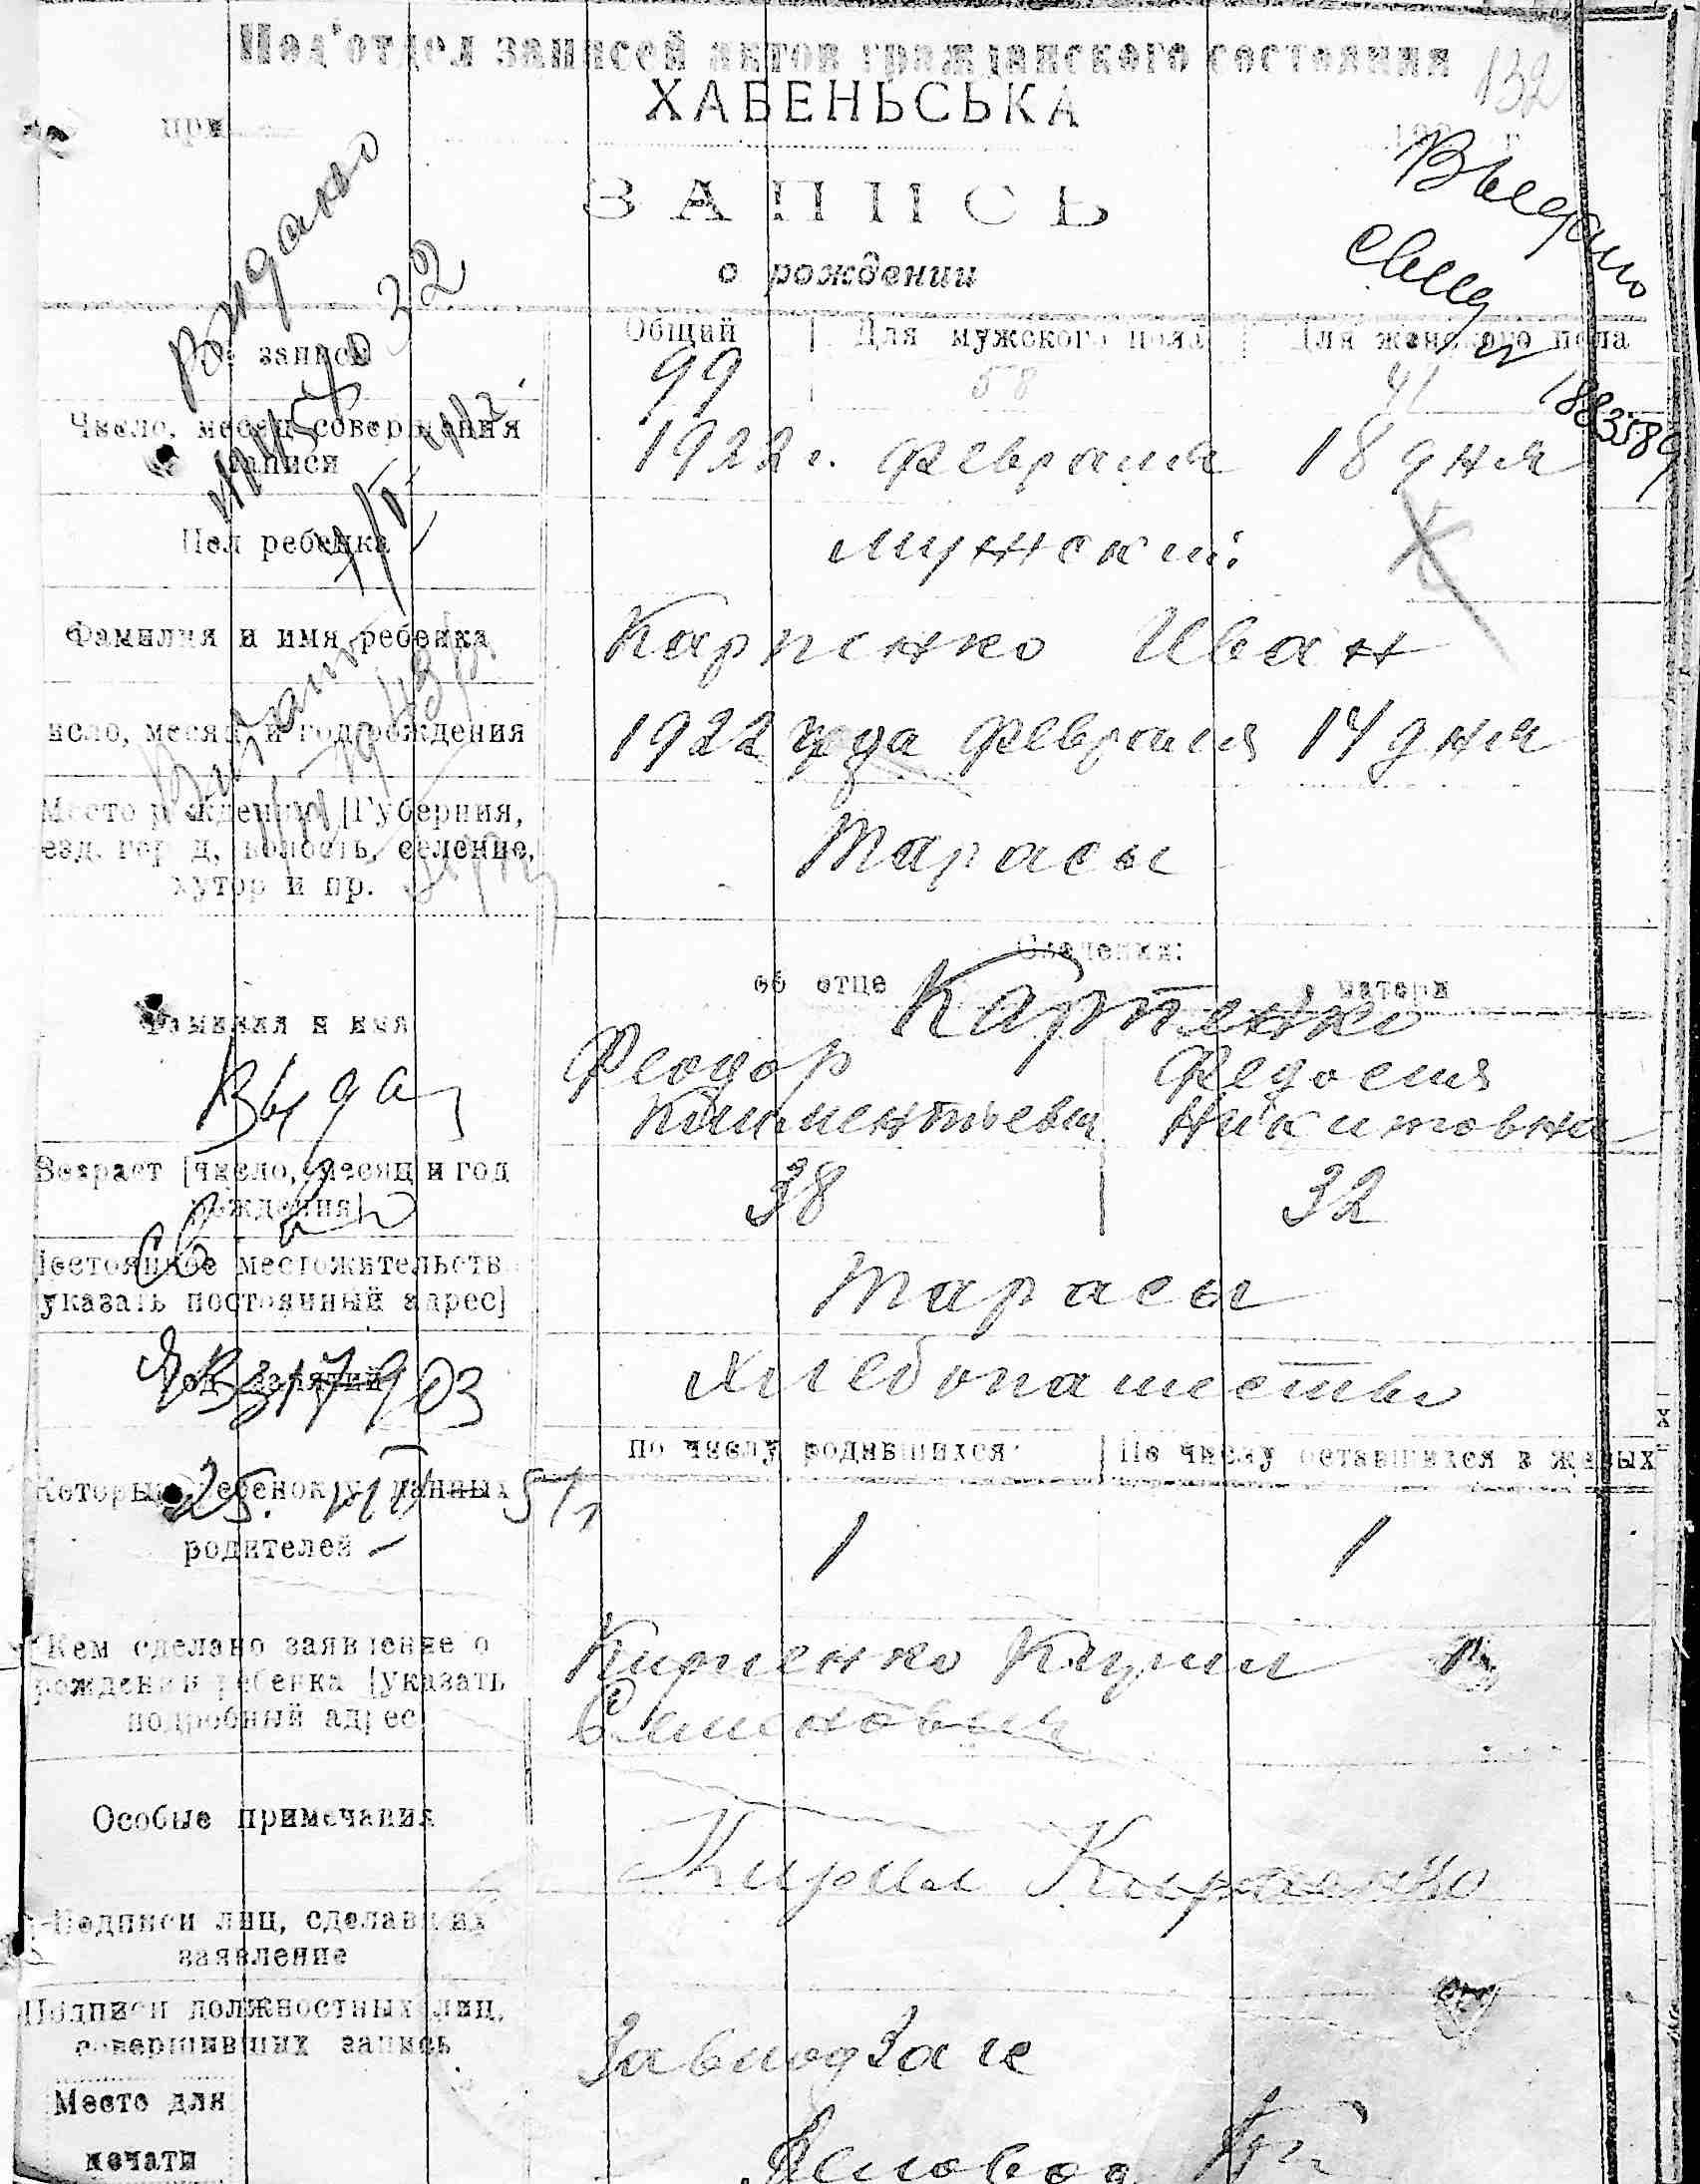 Под'отдел записей актов гражданского состояния
132
ХАБЕНЬСЬКА
при
192 г.
ЗАПИСЬ
о рождении
Видано
Выдано
свид
1883589
Общий Для мужского пола Для женского пола
№ записи 99 58 41
Число, месяц совершения
записи
1922 г. февраля 18 дня
Пол ребенка мужский
Фамилия и имя ребенка Карпенко Иван
исло, месяц и год рождения 1922 года февраля 14 дня
Место рождения [Губерния,
езд, город, волость, селение,
хутор и пр.
Тарасы
Сведения:
об отце о матери
Карпенко
Фамилия и имя
Феодор Федосия
Климентьевич Никитовна
Возраст [число, месяц и год
рождения]
38 32
Постоянное местожительств
[указать постоянный адрес]
Тарасы
Род занятий Хлебопашество
317903
по числу родившихся По числу оставшихся в живых
Который ребенок у данных
родителей
1 1
25.
Кем сделано заявление о
рождении ребенка [указать
подробный адрес
Карпенко Кирил
Семенович
Особые примечания
Кирил Карпенко
Подписи лиц, сделавших
заявление
Подписи должностных лиц,
совершивших запись
Завподзагс
Место для
печати